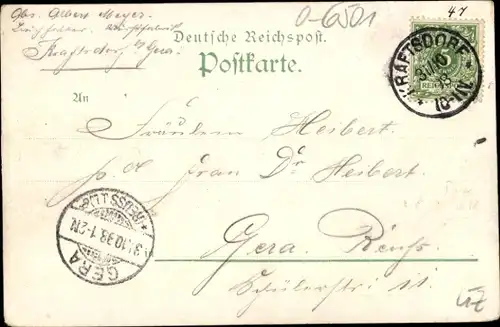 Abs. Albert Meyer.
Kraftsdorf b/ Gera.
0-6501
47
Deutsche Reichspost.
Postkarte.
KRAFTSDORF
31/10
98
10-11V.
An
Fräulein Heibert.
p. a Frau Dr Heibert.
Gera. Reuss.
Schülerstr 11.
GERA
31.10.98.1-2N.